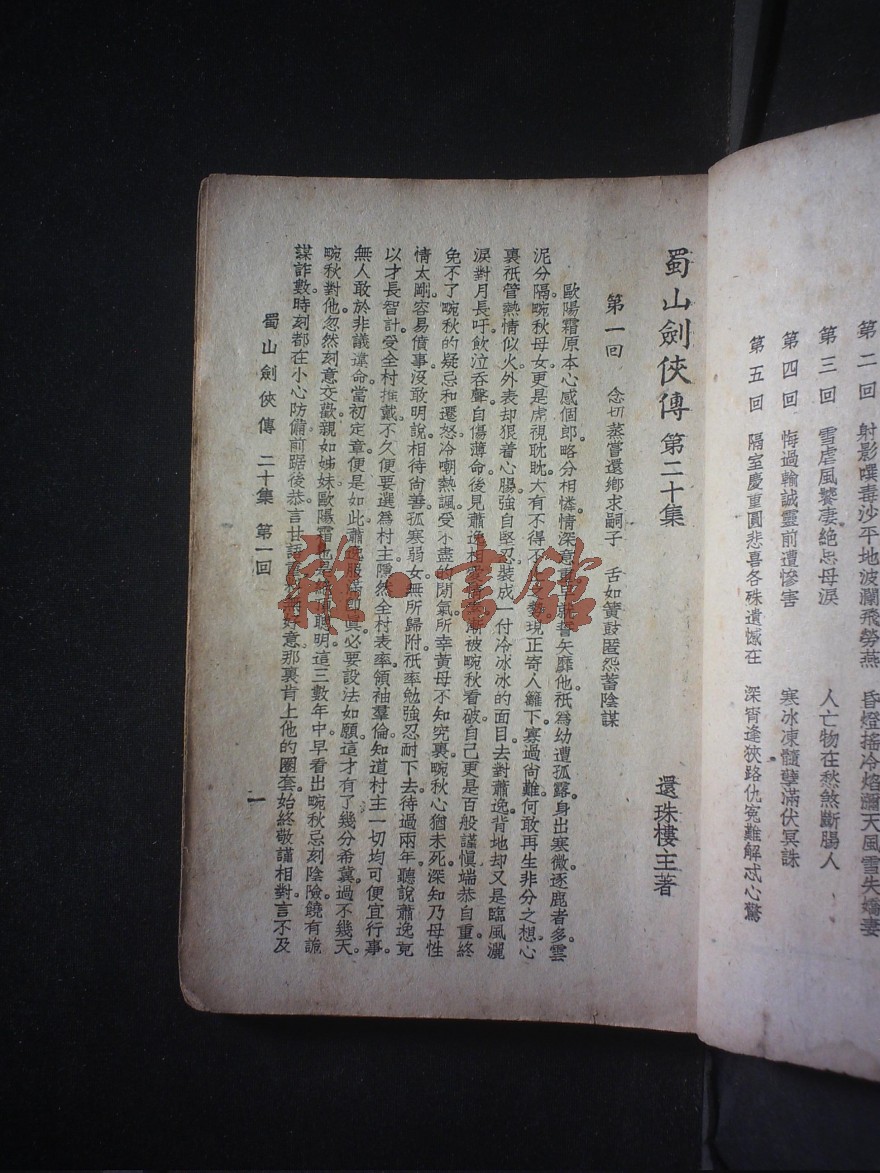 第二回　射影噀毒沙平地波瀾飛勞燕　昏燈搖冷焰瀰天風雪失嬌妻
第三回　雪虐風饕淒絕思母淚　人亡物在愁煞斷腸人
第四回　悔過輸誠靈前遭慘害　寒冰凍髓孽滿伏冥誅
第五回　隔室慶重圓悲喜各殊遺憾在　深宵逢狹路仇冤難解忒心驚
蜀山劍俠傳 第二十集
還珠樓主著
第一回　念切蒸嘗還鄉求嗣子　舌如簧鼓匿怨蓄陰謀
歐陽霜原本心感個郎略分相憐情深意重早就誓矢靡他。祇為幼遭孤露身出寒微逐鹿者多雲
泥分隔。畹秋母女更是虎視眈眈大有不得不止之勢現正寄人籬下寡過尚難何敢再生非分之想。心
裏祇管熱情似火外表却狠着心腸強自堅忍裝成一付冷冰冰的面目去對蕭逸背地却又是臨風灑
淚對月長吁飲泣吞聲自傷薄命後見蕭逸相愛漸被畹秋看破。自己更是百般謹慎端恭自重。終
免不了畹秋的疑忌和遷怒冷嘲熱諷受不盡的閉氣。所幸黃母不知究裏畹秋心猶未死。深知乃母性
情太剛容易僨事沒敢明說。相待尚善孤寒弱女無所歸附祇率勉強忍耐下去。待過兩年聽說蕭逸竟
以才長智計受全村推戴不久便要選為村主隱然全村表率領袖羣倫知道村主一切均可便宜行事。
無人敢於非議違命當初定章便是如此蕭逸服滿即真必要設法如願。這才有了幾分希冀。過不幾天。
畹秋對他忽然刻意交歡親如姊妹歐陽霜也是聰明這三數年中早看出畹秋忌刻陰險饒有詭
謀詐數時刻都在小心防備前踞後恭言甘語重必無好意那裏肯上他的圈套。始終敬謹相對。言不及
蜀山劍俠傳　二十集　第一回
一
雅·書館